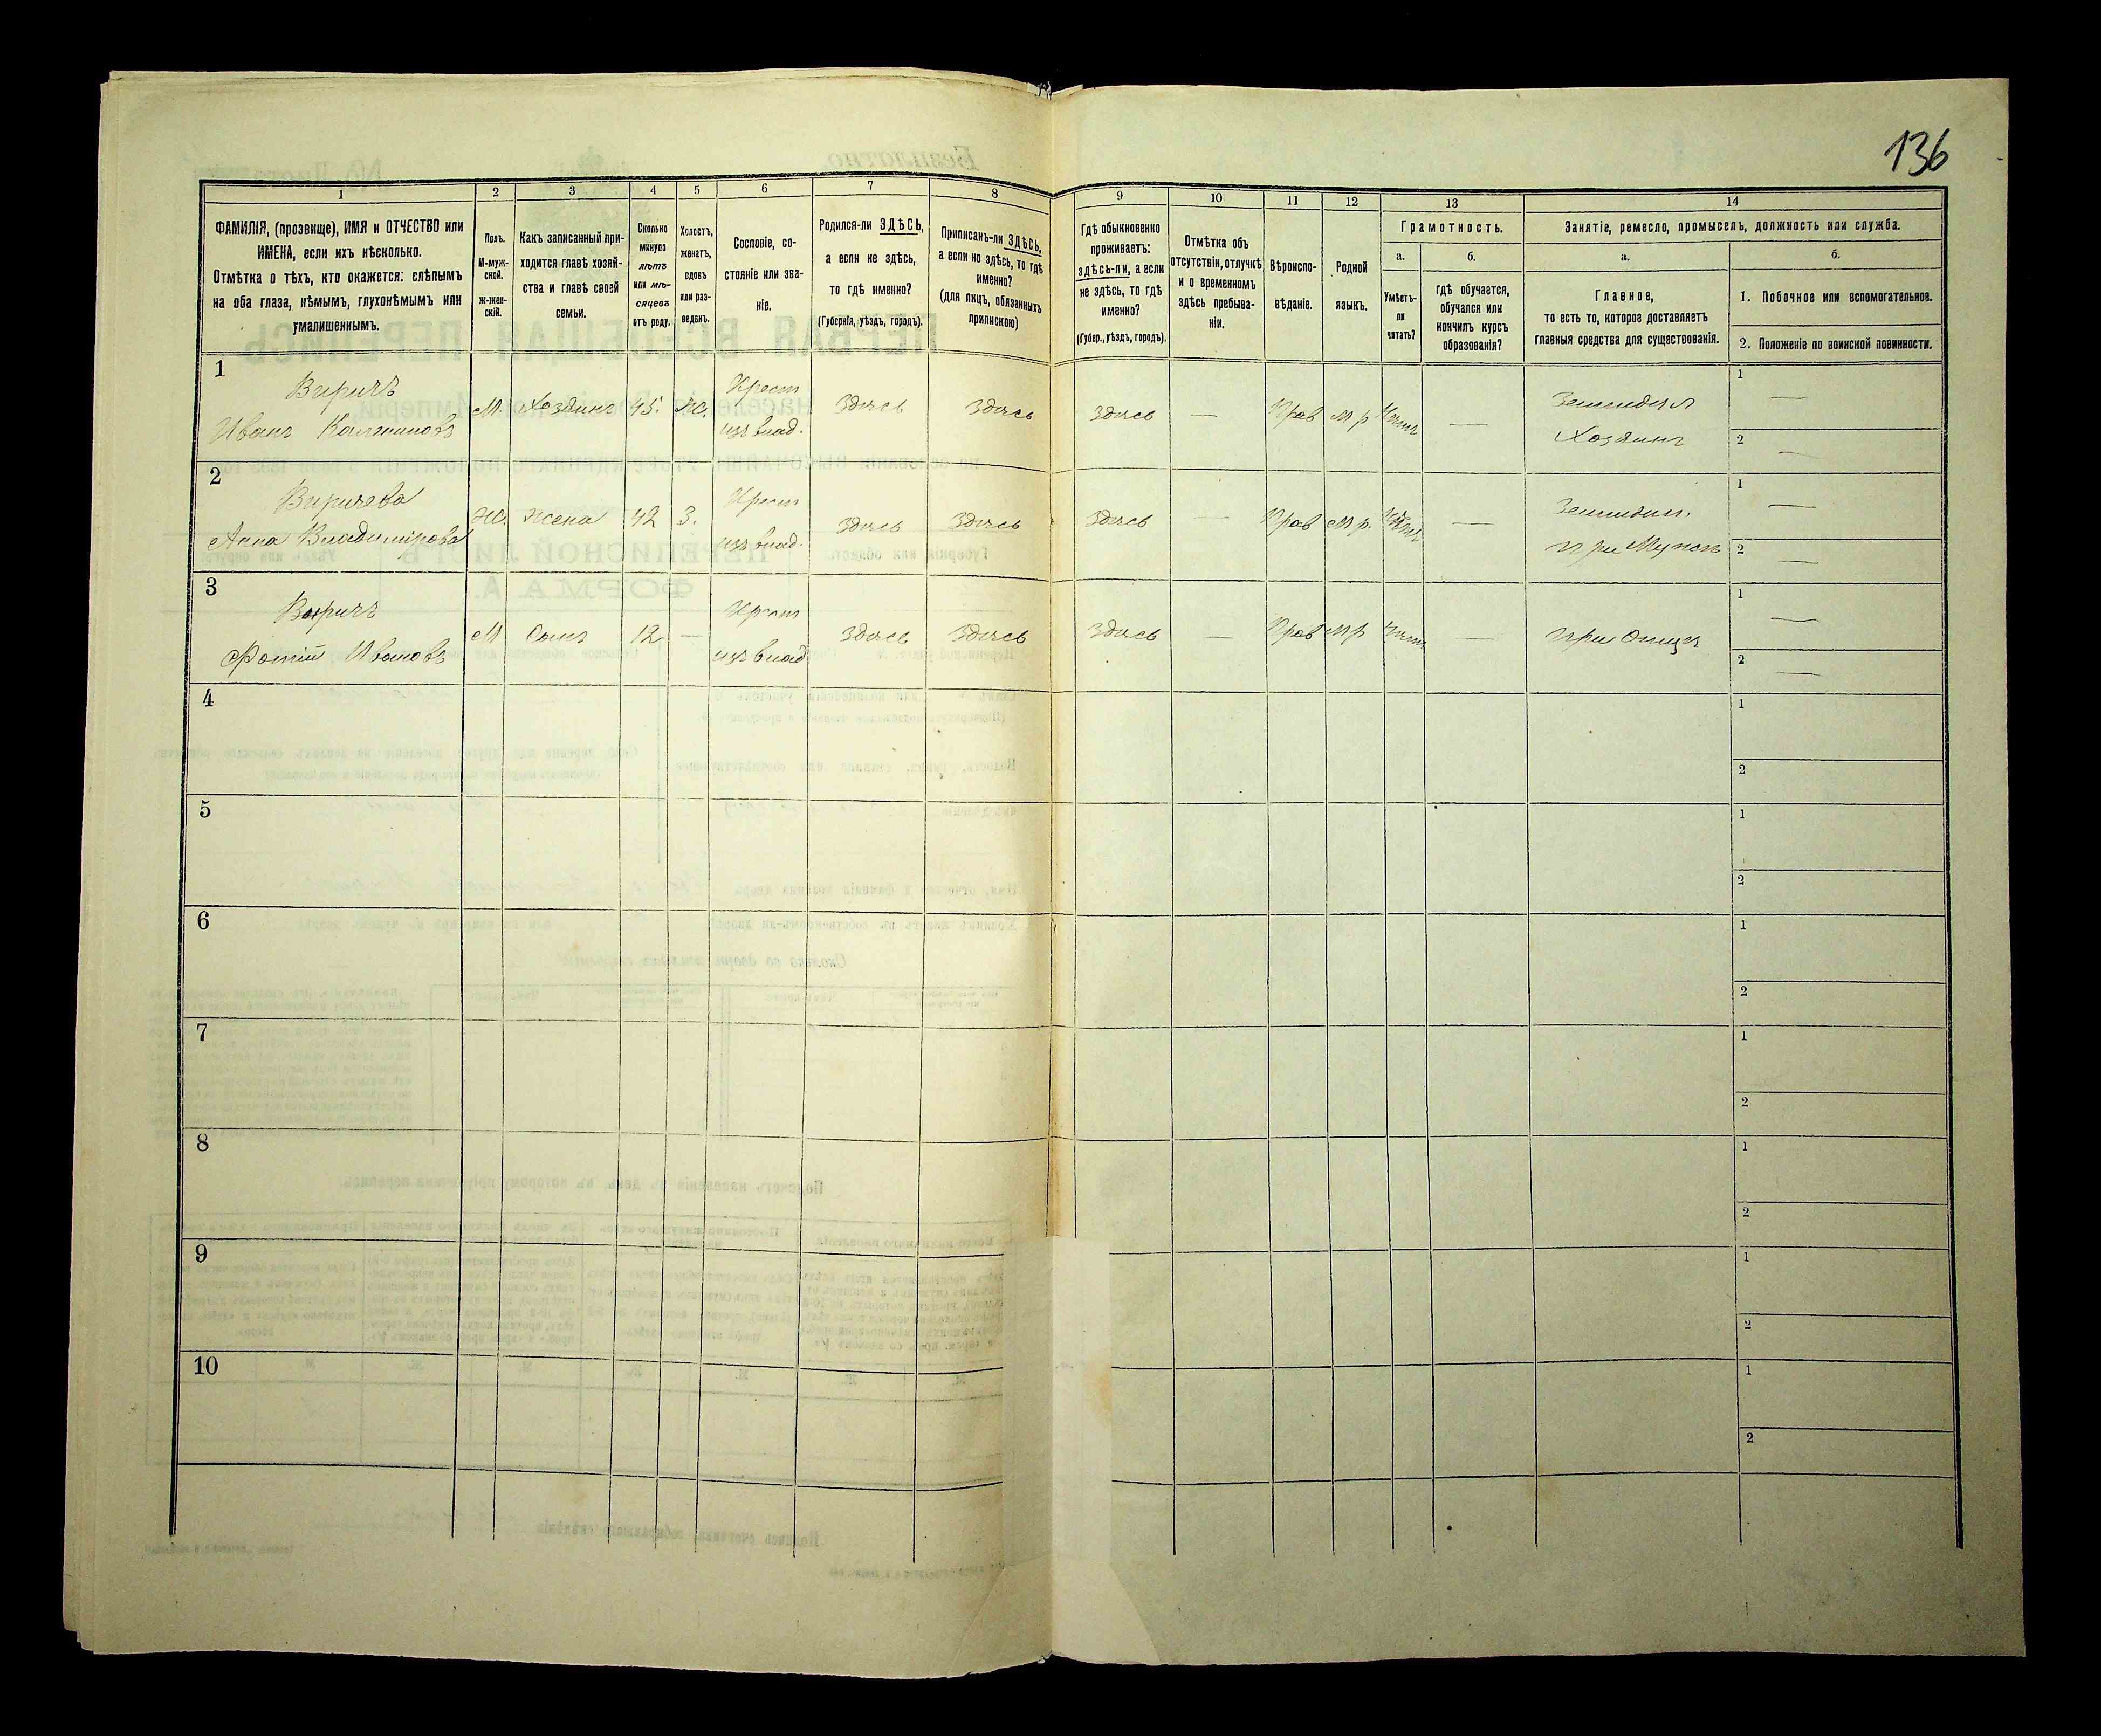 136
1 2 3 4 5 6 7 8 9 10 11 12 13 14
ФАМИЛІЯ, (прозвище), ИМЯ и ОТЧЕСТВО или
ИМЕНА, если ихъ нѣсколько.
Отмѣтка о тѣхъ, кто окажется: слѣпымъ
на оба глаза, нѣмымъ, глухонѣмымъ или
умалишеннымъ.
Полъ.
М-муж-
ской.
Ж-жен-
скій.
Какъ записанный при-
ходится главѣ хозяй-
ства и главѣ своей
семьи.
Сколько
минуло
лѣтъ
или мѣ-
сяцевъ
отъ роду.
Холостъ,
женатъ,
вдовъ
или раз-
веденъ.
Сословіе, со-
стояніе или зва-
ніе.
Родился-ли ЗДѢСЬ,
а если не здѣсь,
то гдѣ именно?
(Губернія, уѣздъ, городъ).
Приписанъ-ли ЗДѢСЬ,
а если не здѣсь, то гдѣ
именно?
(для лицъ, обязанныхъ
припискою)
Гдѣ обыкновенно
проживаетъ:
здѣсь-ли, а если
не здѣсь, то гдѣ
именно?
(Губер., уѣздъ, городъ).
Отмѣтка объ
отсутствіи, отлучкѣ
и о временномъ
здѣсь пребыва-
ніи.
Вѣроиспо-
вѣданіе.
Родной
языкъ.
Грамотность.
а.
Умѣетъ-
ли
читать?
б.
гдѣ обучается,
обучался или
кончилъ курсъ
образованія?
Занятіе, ремесло, промыселъ, должность или служба.
а.
Главное,
то есть то, которое доставляетъ
главныя средства для существованія.
б.
1. Побочное или вспомогательное.
2. Положеніе по воинской повинности.
1
Виричъ
Иванъ
М. Хозяинъ 45. Ж.
Крест
изъ влад.
здѣсь здѣсь здѣсь — Прав м р —
Земледѣл
Хозяинъ
1 —
2 —
2
Виричева
Анна Владимірова
Ж. жена 42 З.
Крест
изъ влад.
здѣсь здѣсь здѣсь — Прав м р. —
Земледѣл.
при Мужѣ
1 —
2 —
3
Виричъ
Фотій Ивановъ
М Сынъ 12 —
Крест
изъ влад
здѣсь здѣсь здѣсь — Прав м р —
при Отцѣ
1 —
2 —
4
1
2
5
1
2
6
1
2
7
1
2
8
1
2
9
1
2
10
1
2